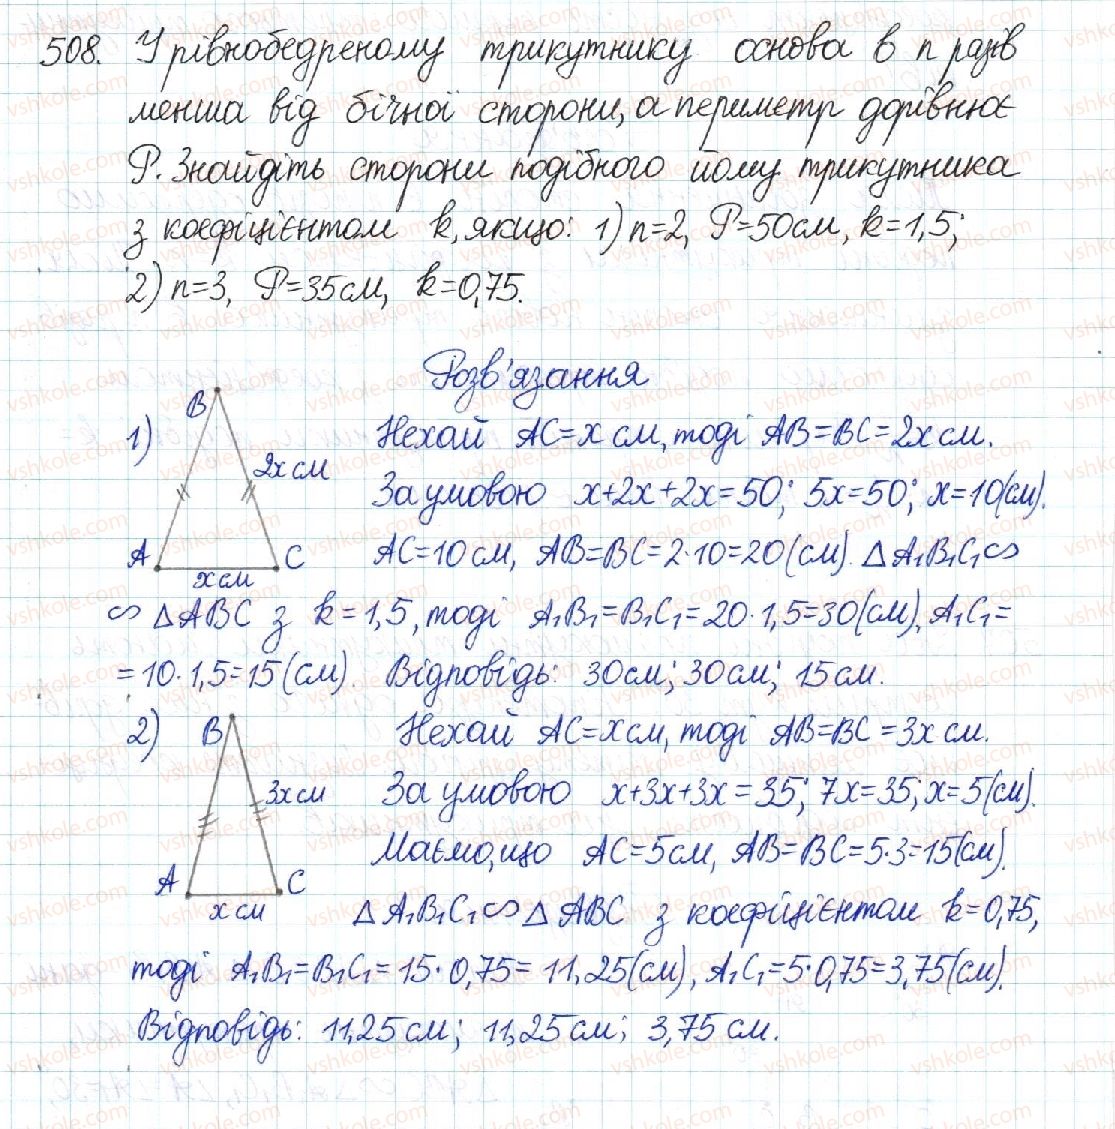 508. У рівнобедреному трикутнику основа в n разів
менша від бічної сторони, а периметр дорівнює
P. Знайдіть сторони подібного йому трикутника
з коефіцієнтом k, якщо: 1) n=2, P=50см, k=1,5;
2) n=3, P=35см, k=0,75.
Розв'язання
1)
B
2x см
A
C
x см
Нехай AC=x см, тоді AB=BC=2x см.
За умовою x+2x+2x=50; 5x=50; x=10(см).
AC=10см, AB=BC=2·10=20(см). △A₁B₁C₁∽
∽ △ABC з k=1,5, тоді A₁B₁=B₁C₁=20·1,5=30(см), A₁C₁=
=10·1,5=15(см). Відповідь: 30см; 30см; 15см.
2)
B
3x см
A
C
x см
Нехай AC=x см, тоді AB=BC=3x см.
За умовою x+3x+3x=35; 7x=35; x=5(см).
Маємо, що AC=5см, AB=BC=5·3=15(см).
△A₁B₁C₁∽△ABC з коефіцієнтом k=0,75,
тоді A₁B₁=B₁C₁=15·0,75=11,25(см), A₁C₁=5·0,75=3,75(см).
Відповідь: 11,25см; 11,25см; 3,75см.
vshkole.com